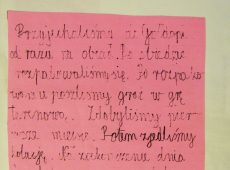 Przyjechaliśmy do
od razu na obiad. Po obiedzie
rozpakowaliśmy się. Po rozpako
waniu poszliśmy grać w grę
terenową. Zdobyliśmy pier
wsze miejsce. Potem zjedliśmy
kolację. Na zakończenie dnia